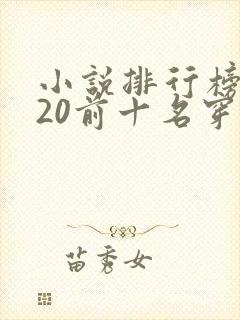 小説排行榜
20前十名穿
苗秀女